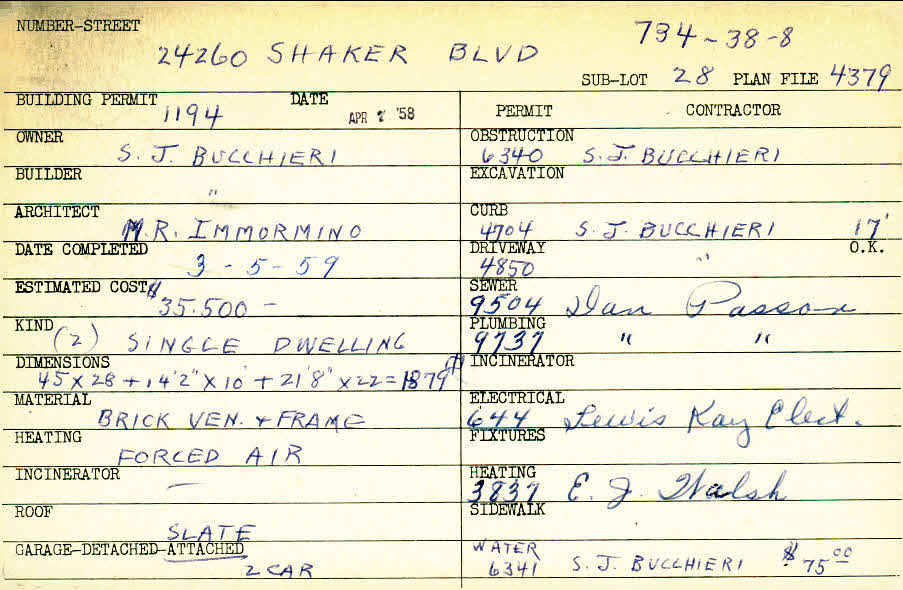 NUMBER-STREET
24260 SHAKER BLVD
734-38-8
SUB-LOT 28 PLAN FILE 4379
BUILDING PERMIT 1194 DATE APR '58
OWNER S. J. BUCCHIERI
BUILDER "
ARCHITECT M.R. IMMORMINO
DATE COMPLETED 3-5-59
ESTIMATED COST $35.500 —
KIND (2) SINGLE DWELLING
DIMENSIONS 45 x 28 + 14'2" x 10' + 21'8" x 22 = 1879
MATERIAL BRICK VEN. + FRAME
HEATING FORCED AIR
INCINERATOR —
ROOF SLATE
GARAGE-DETACHED-ATTACHED
2 CAR
PERMIT CONTRACTOR
OBSTRUCTION
6340 S. J. BUCCHIERI
EXCAVATION
CURB
4704 S. J. BUCCHIERI 17'
DRIVEWAY " O.K.
4850
SEWER
9504 Dan Passov
PLUMBING
9737 " "
INCINERATOR
ELECTRICAL
644 Lewis Kay Elect.
FIXTURES
HEATING
3837 E. J. Walsh
SIDEWALK
WATER
6341 S. J. BUCCHIERI $75.00